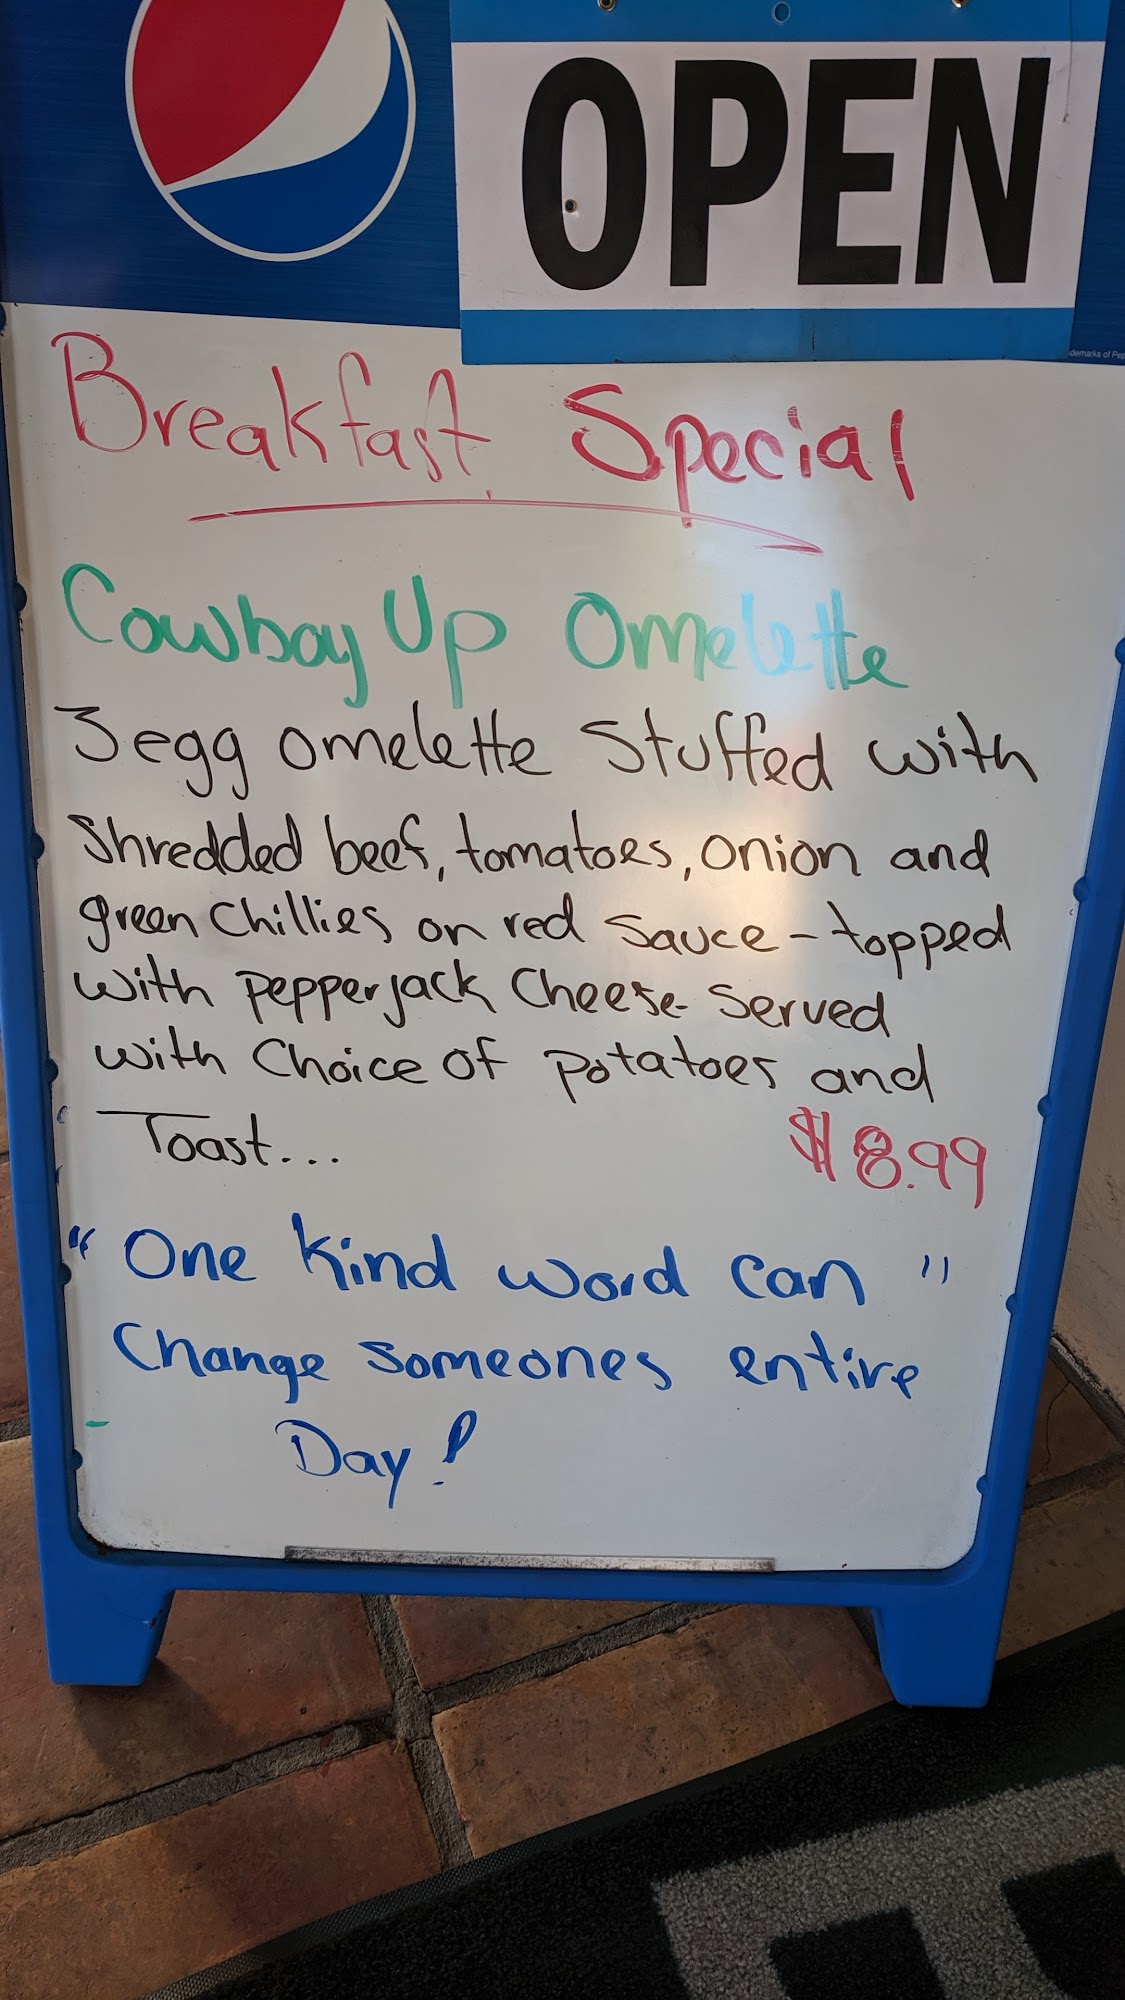 OPEN
demarks of Pep
Breakfast Special
Cowboy Up Omelette
3 egg omelette Stuffed with
Shredded beef, tomatoes, onion and
green Chillies on red Sauce - topped
with Pepperjack Cheese- Served
with Choice of potatoes and
Toast...
$8.99
"One kind word can"
Change someones entire
Day!